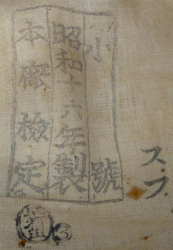 小號
昭和十六年製
本廠檢定
ス.フ.